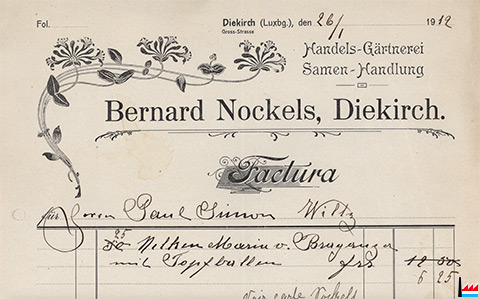 Fol.
Diekirch (Luxbg.), den 26/1 1912
Gross-Strasse
Handels-Gärtnerei
Samen-Handlung
Bernard Nockels, Diekirch.
Factura
für Herrn Paul Simon Wiltz
25
50 Nelken Maria v. Braganza 12 50
mit Topfballen frs 6 25
carte Nockels